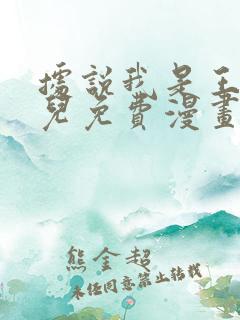 據說我是王
兒免費漫畫
熊金超
未經同意禁止轉載